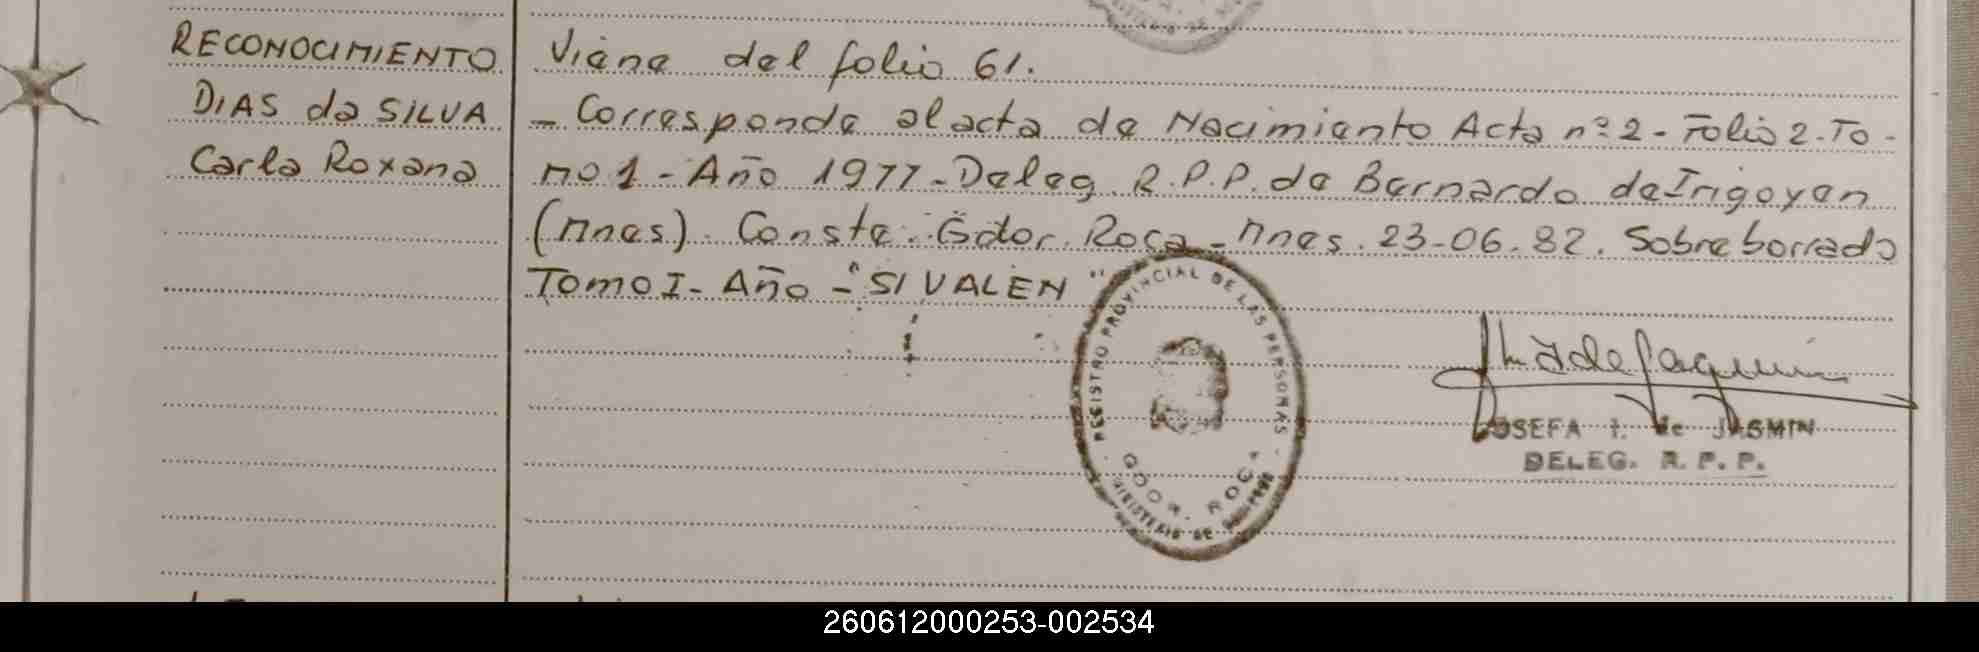 RECONOCIMIENTO
DIAS da SILVA
Carla Roxana
Viene del folio 61.
- Corresponde al acta de Nacimiento Acta nº 2 - Folio 2 - To -
mo 1 - Año 1977 - Deleg. R.P.P. de Bernardo de Irigoyen
(Mnes). Conste. Gdor. Roca - Mnes. 23-06-82. Sobre borrado
Tomo I - Año - "SI VALEN"
REGISTRO PROVINCIAL DE LAS PERSONAS
GDOR. ROCA
MINISTERIO DE GOBIERNO
JOSEFA I. de JASMIN
DELEG. R. P. P.
260612000253-002534